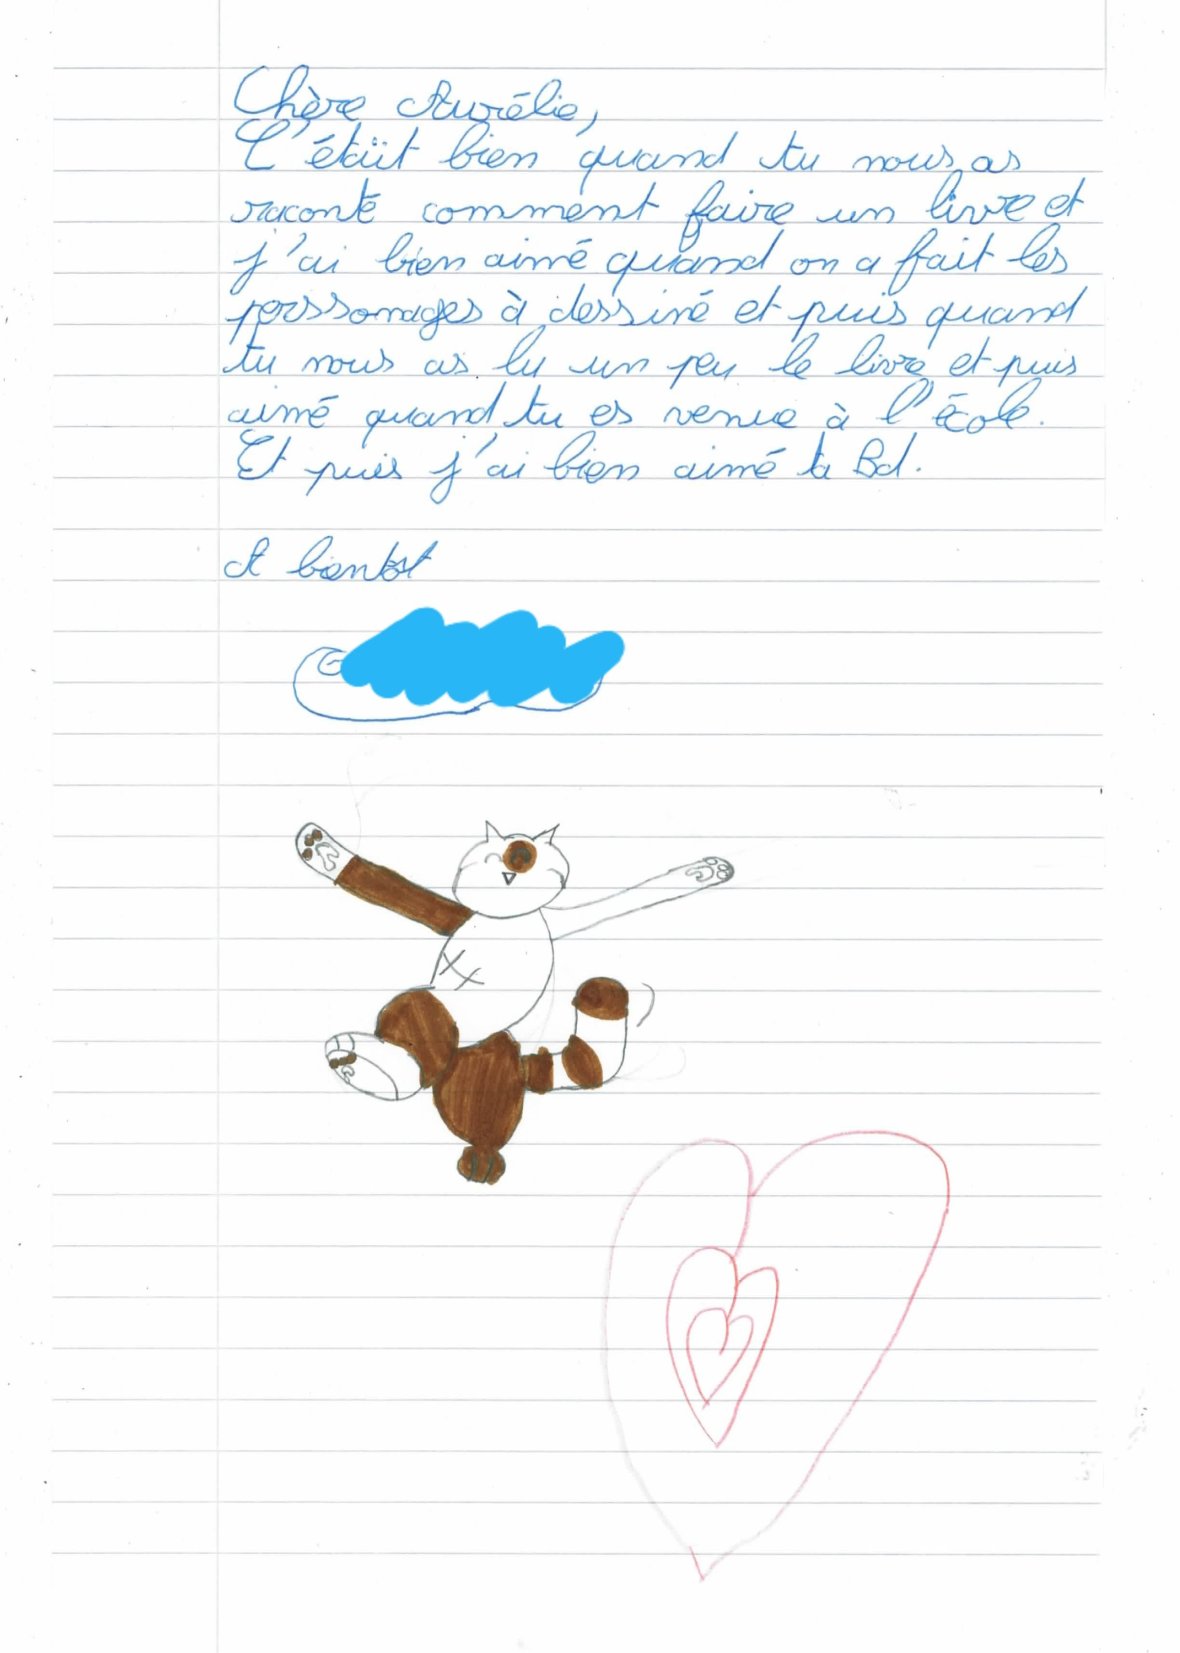 Chère Aurélie,
C'étäit bien quand tu nous as
raconté comment faire un livre et
j'ai bien aimé quand on a fait les
perssonages à dessiné et puis quand
tu nous as lu un peu le livre et puis
aimé quand tu es venue à l'école.
Et puis j'ai bien aimé ta Bd.
A bientôt